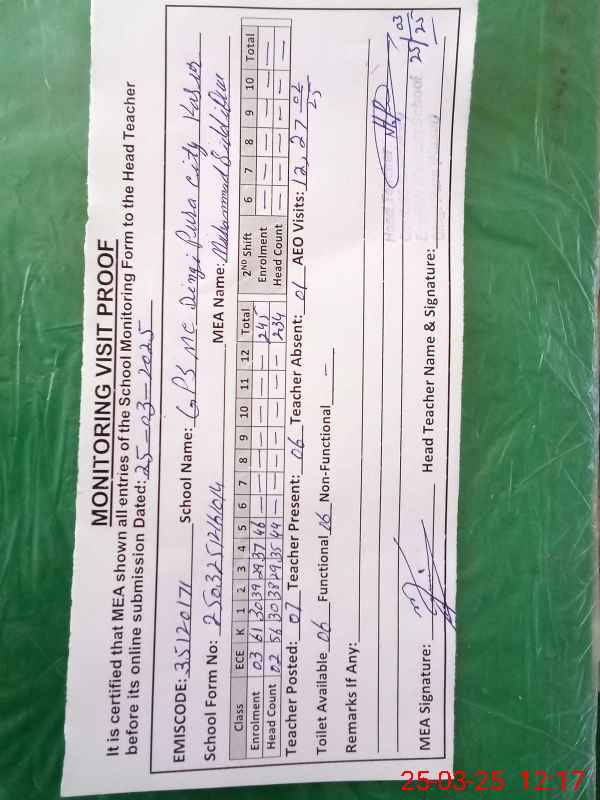 MONITORING VISIT PROOF
It is certified that MEA shown all entries of the School Monitoring Form to the Head Teacher
before its online submission Dated: 25-03-2025
EMISCODE: 35120171 School Name: GPS MC Dingi Pura City Kasur
School Form No: MEA Name: Muhammad
Class ECE K 1 2 3 4 5 6 7 8 9 10 11 12 Total 2ND Shift 6 7 8 9 10 Total
Enrolment 03 61 30 39 29 37 46 — — — — — — — 245 Enrolment — — — — — —
Head Count 02 56 30 38 29 35 44 — — — — — — — 234 Head Count — — — — — —
Teacher Posted: 07 Teacher Present: 06 Teacher Absent: 01 AEO Visits: 12, 27 02/25
Toilet Available 06 Functional 06 Non-Functional —
Remarks If Any:
MEA Signature: Head Teacher Name & Signature: 25/03/25
25-03-25 12:17